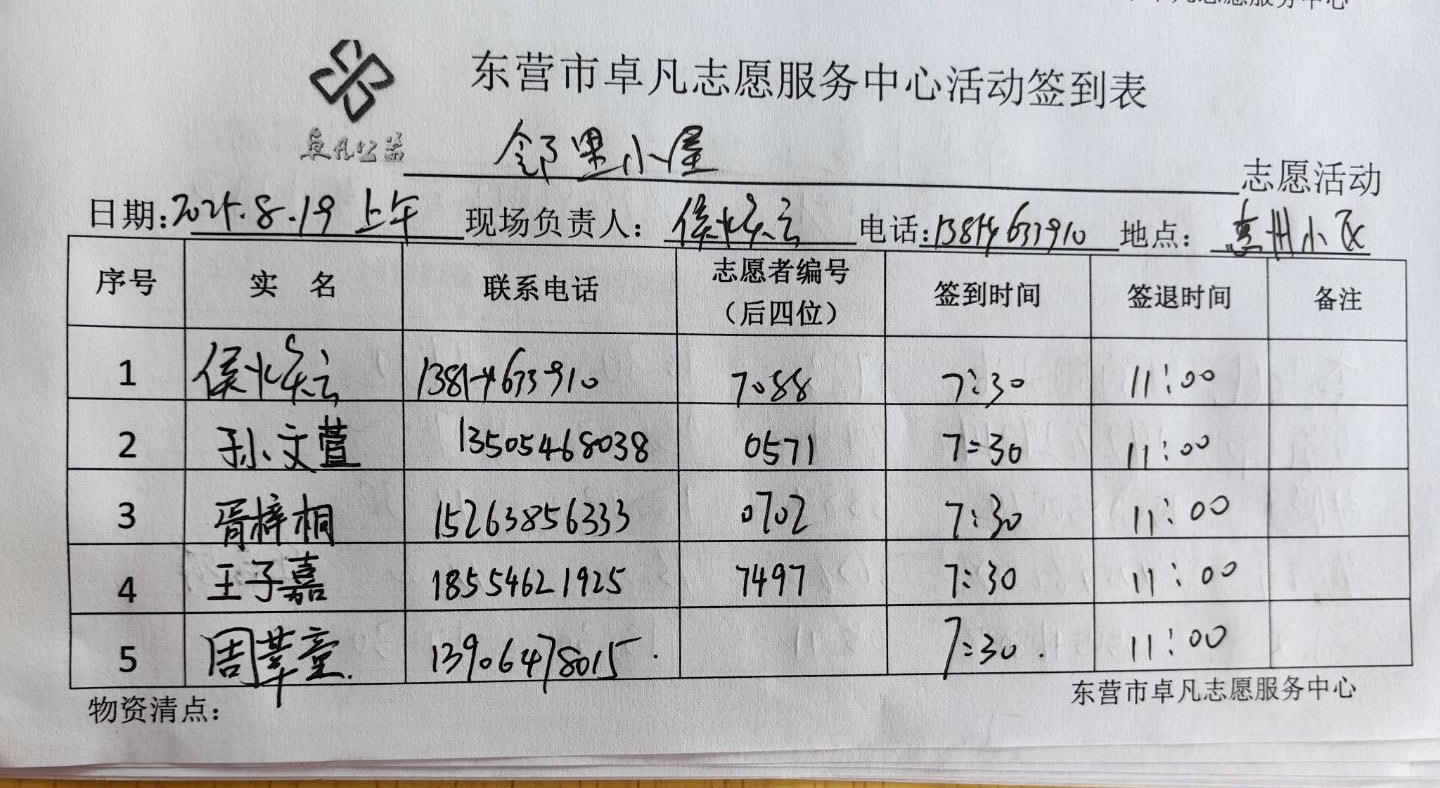 卓凡志愿服务中心
东营市卓凡志愿服务中心活动签到表
卓凡公益
邻里小屋 志愿活动
日期:2025.8.19 上午 现场负责人: 侯 云 电话: 地点: 惠州小区
序号 实 名 联系电话 志愿者编号（后四位） 签到时间 签退时间 备注
1 侯 云 7088 7:30 11:00
2 孙文萱 13505468038 0571 7:30 11:00
3 胥梓桐 15263856333 0702 7:30 11:00
4 王子嘉 18554621925 7497 7:30 11:00
5 周莘童. 13906478015. 7:30. 11:00
物资清点:
东营市卓凡志愿服务中心